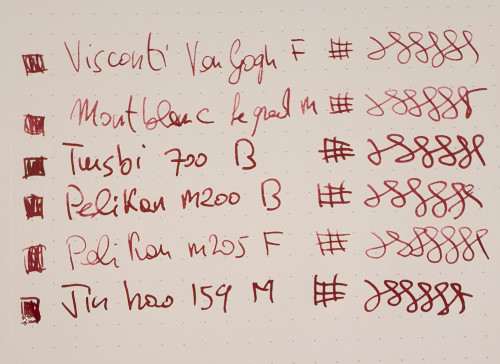 Visconti Van Gogh F
Montblanc Legrand M
Twsbi 700 B
Pelikan m200 B
Pelikan m205 F
Jinhao 159 M